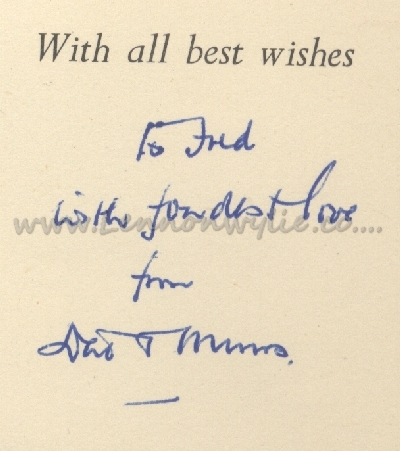 With all best wishes
To Fred
with fondest love
www.LennonWylie.co....
from